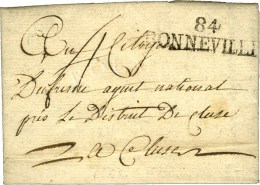 84
BONNEVILLE
Au Citoyen
Dufresne agent national
près le District de Cluse
a Cluse